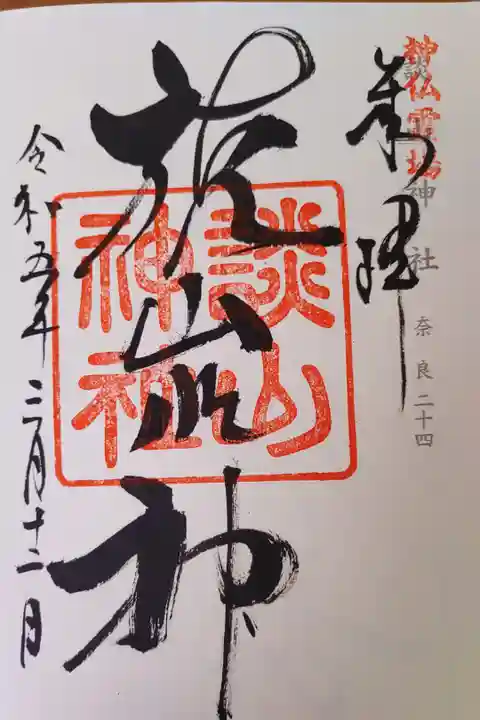 神仏霊場
談山神社
奈良二十四
奉拝
談山神社
令和五年二月十二日